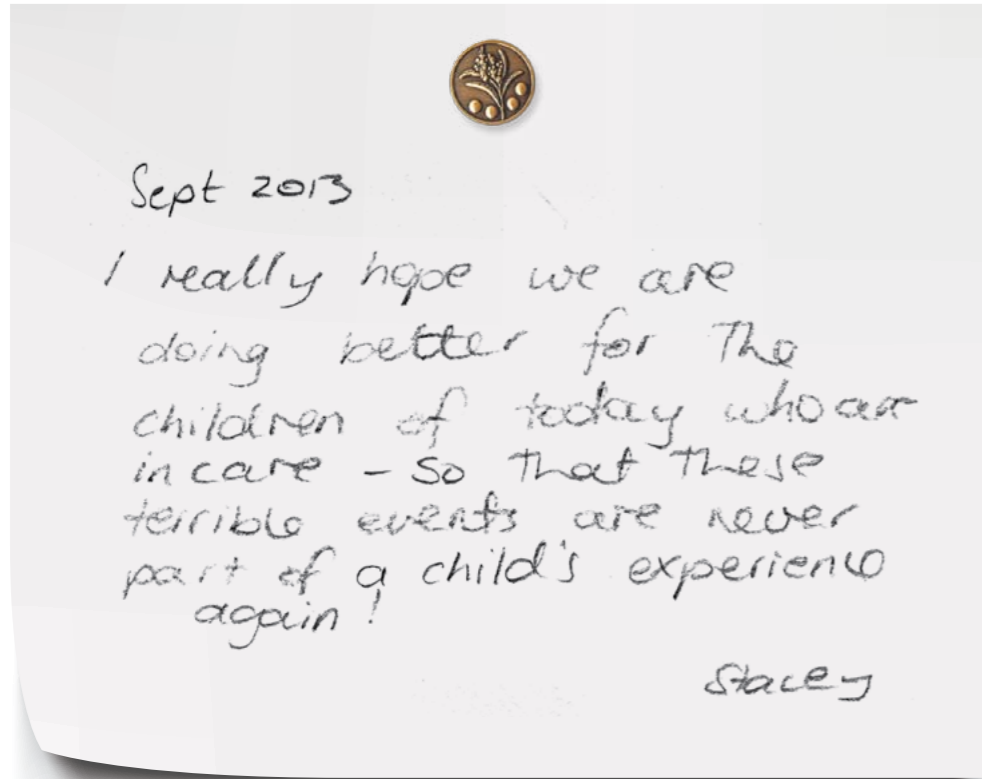 Sept 2013
I really hope we are
doing better for The
children of today who are
in care - so That These
terrible events are never
part of a child's experience
again!
Stacey